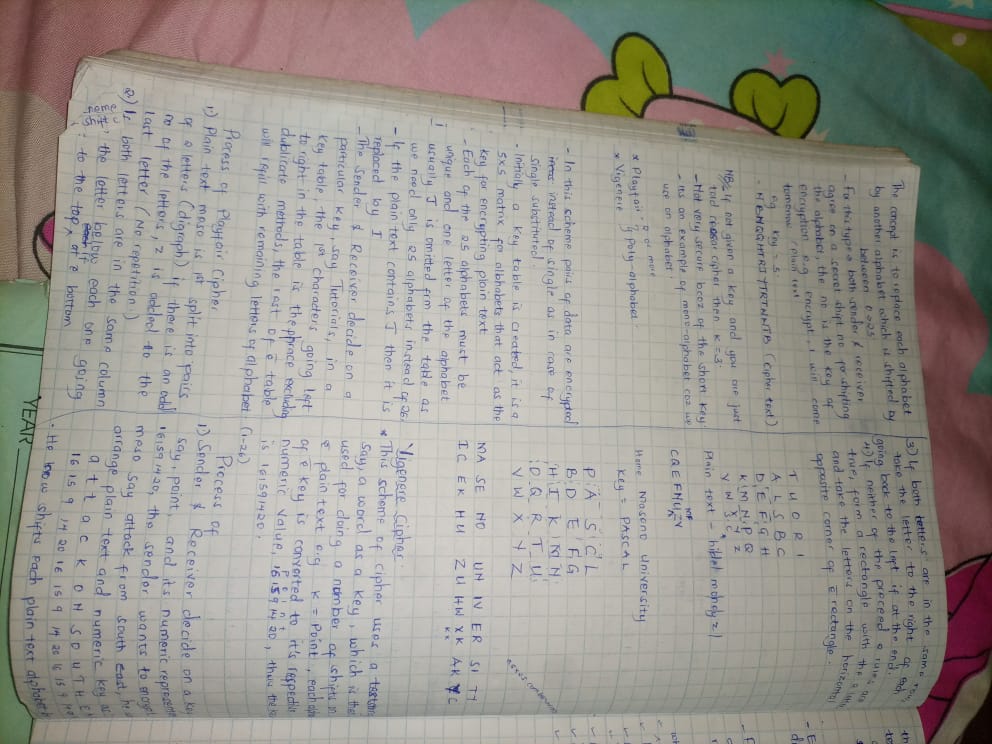 The concept is to replace each alphabet
by another alphabet which is shifted by
between 0 & 25
- For this type a both sender & receiver
agree on a secret shift no for shifting
the alphabet, the no is the key of
encryption e.g encrypt, I will come
tomorrow (Plain text
e.g key = 5.
(cipher text)
NB:- If not given a key and you are just
told ceasor cipher then k = 3.
- Not very secure bcoz of the short key
- Its an example of mono-alphabet coz we
use on alphabet
2 or more
* Playfair } Poly-alphabet
* Vigenere
- In this scheme pairs of data are encrypted
instead of single as in case of
single substituted.
- Initially a key table is created it is a
5x5 matrix for alphabets that act as the
key for encrypting plain text
- Each of the 25 alphabets must be
unique and one letter of the alphabet
usually J is omitted frm the table as
we need only 25 alphabets instead of 26.
- If the plain text contains J then it is
replaced by I
- The sender & Receiver decide on a
particular key, say Tutorials, in a
key table, the 1st characters going left
to right in the table is the phrace excluding
dublicate the rest of a table
will fill with remaining letters of alphabet
Process of Playfair Cipher
1) Plain text is 1st split into pairs
of 2 letters (digraph) If there is an odd
no of the letters, z is added to the
last letter (No repetition)
2) If both letters are in the same column
, the letter below each one going
to the top at a bottom
3) If both letters are in the same row,
take the letter to the right of each,
going back to the left if at the end.
4) If neither of the preceed 2 rules are
true, form a rectangle with the 2
and take the letters on the horizontal
opposite corner of a rectangle.
T U O R I
A L S B C
D E F G H
K M N P Q
V W X Y Z
Plain text - hide money z |
CQ EF NU MF ZY
Home Masono University
Key = PASCAL
P A S C L
B D E F G
H I K M N
O Q R T U
V W X Y Z
MA SE NO UN IV ER SI TY
IC EK HU ZU HW XK AK YC
Vigenere Cipher
* This scheme of cipher uses a
say, a word as a key, which is then
used for doing a number of shifts on
a plain text e.g k = Point, each
of a key is converted to it's respective
numeric value, 16 15 9 14 20, thus the
P o i n t
is 16 15 9 14 20.
(1-26)
Process of
1) Sender & Receiver decide on a key
say, point and it's numeric
16 15 9 14 20, the sender wants to
say attack from south east, he
arrange plain text and numeric key as
a t t a c k O N S O U T H E
16 15 9 14 20 16 15 9 14 20 16 15 9 14
- He now shifts each plain text alphabet
YEAR